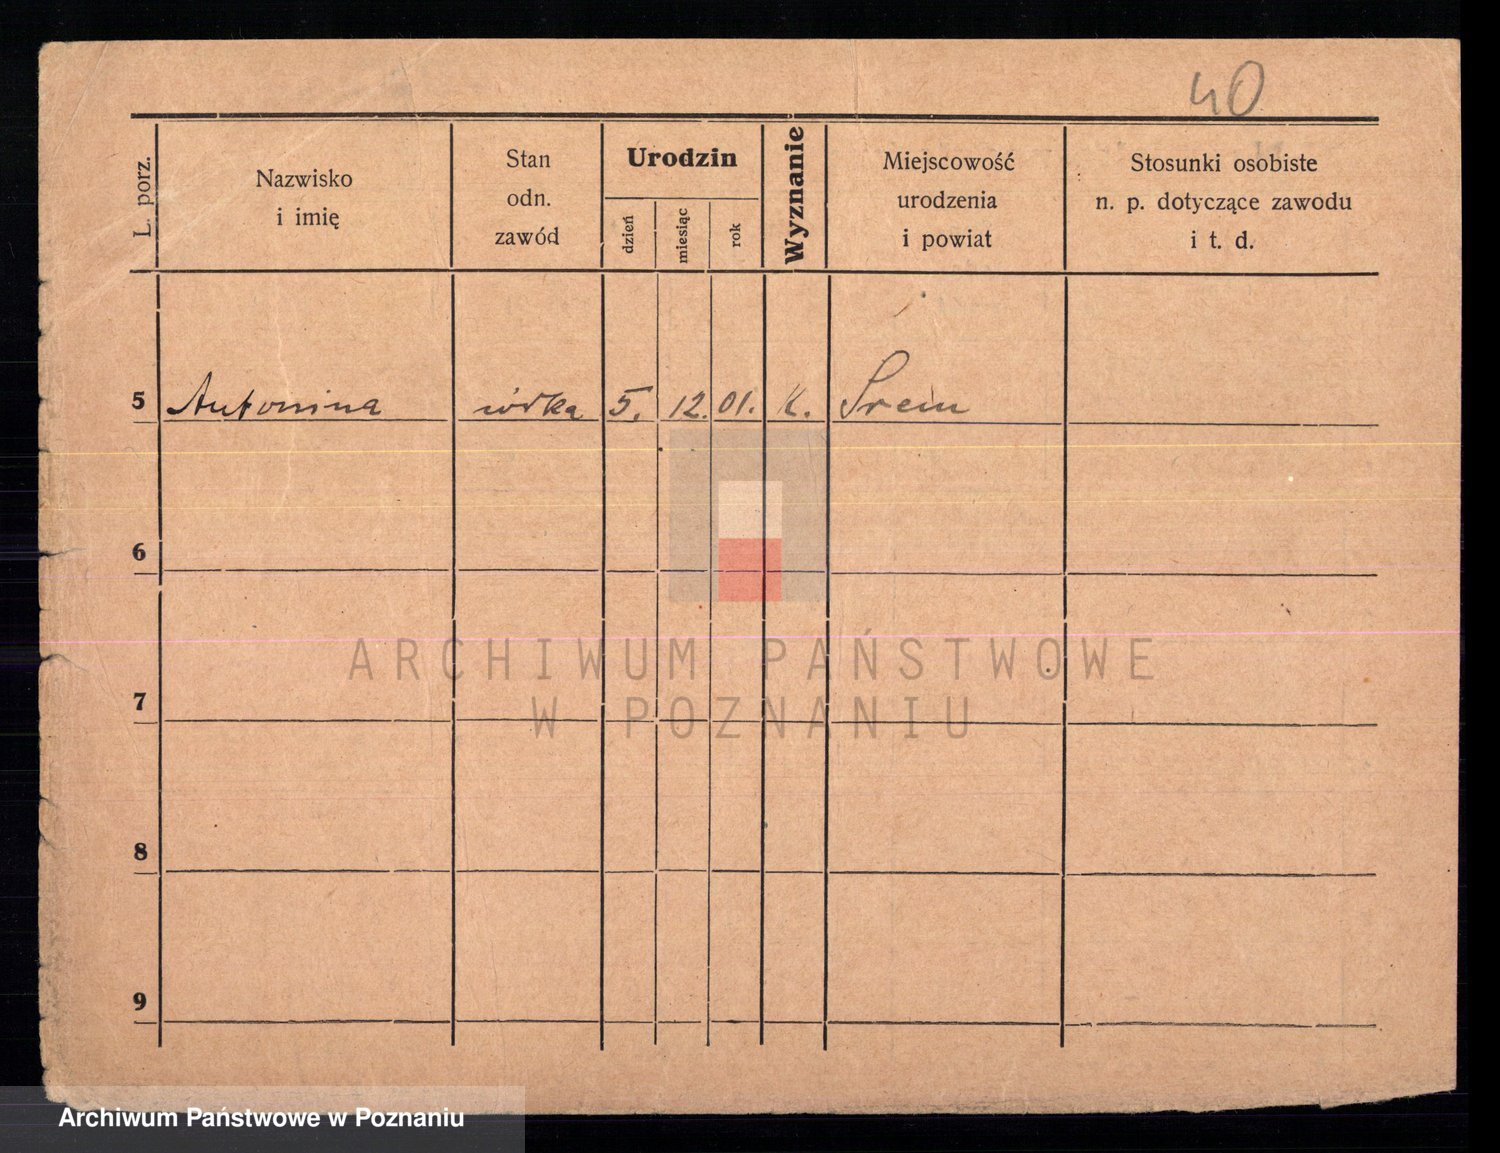 40
L. porz.
Nazwisko
i imię
Stan
odn.
zawód
Urodzin
dzień
miesiąc
rok
Wyznanie
Miejscowość
urodzenia
i powiat
Stosunki osobiste
n. p. dotyczące zawodu
i t. d.
5 Antonina 5. 12. 01. K. Śrem
6
7
8
9
ARCHIWUM PAŃSTWOWE
W POZNANIU
Archiwum Państwowe w Poznaniu